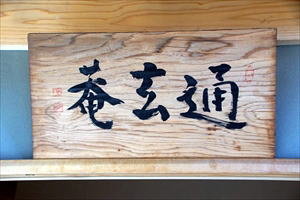 通玄菴